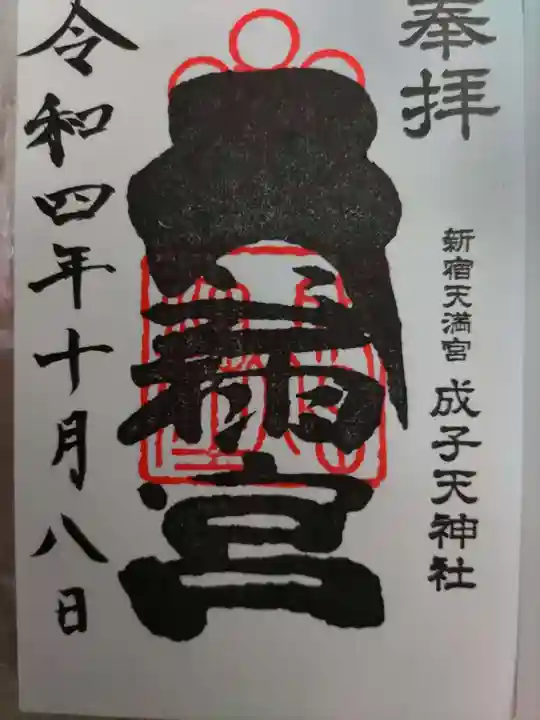 奉拝
新宿天満宮 成子天神社
天満宮
令和四年十月八日